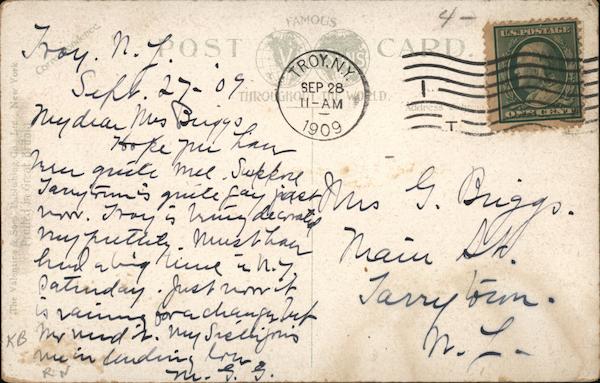 Troy, N. Y.
Sept. 27 - '09
My dear Mrs Briggs
Hope you have
been quite well. Suppose
Tarrytown is quite gay just
now. Troy is being decorated
very prettily. Must have
had a big time in N.Y.
Saturday. Just now it
is raining for a change but
we need it. My
me in sending love
M. G. G.
KB
RN
4-
FAMOUS
POST CARD.
THROUGHOUT THE WORLD.
Correspondence.
TROY, N.Y.
SEP 28
11-AM
1909
U.S. POSTAGE
ONE CENT
Mrs G. Briggs.
Main St.
Tarrytown.
N. Y.